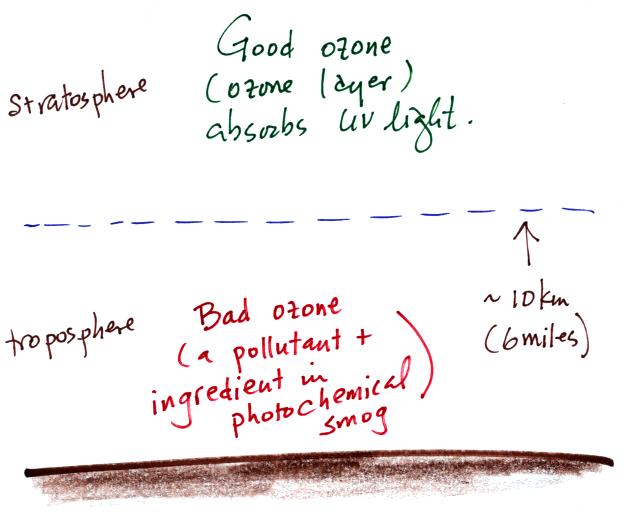 Good ozone
(ozone layer)
absorbs UV light.
stratosphere
~10km
(6miles)
troposphere
Bad ozone
(a pollutant +
ingredient in
photochemical
smog)